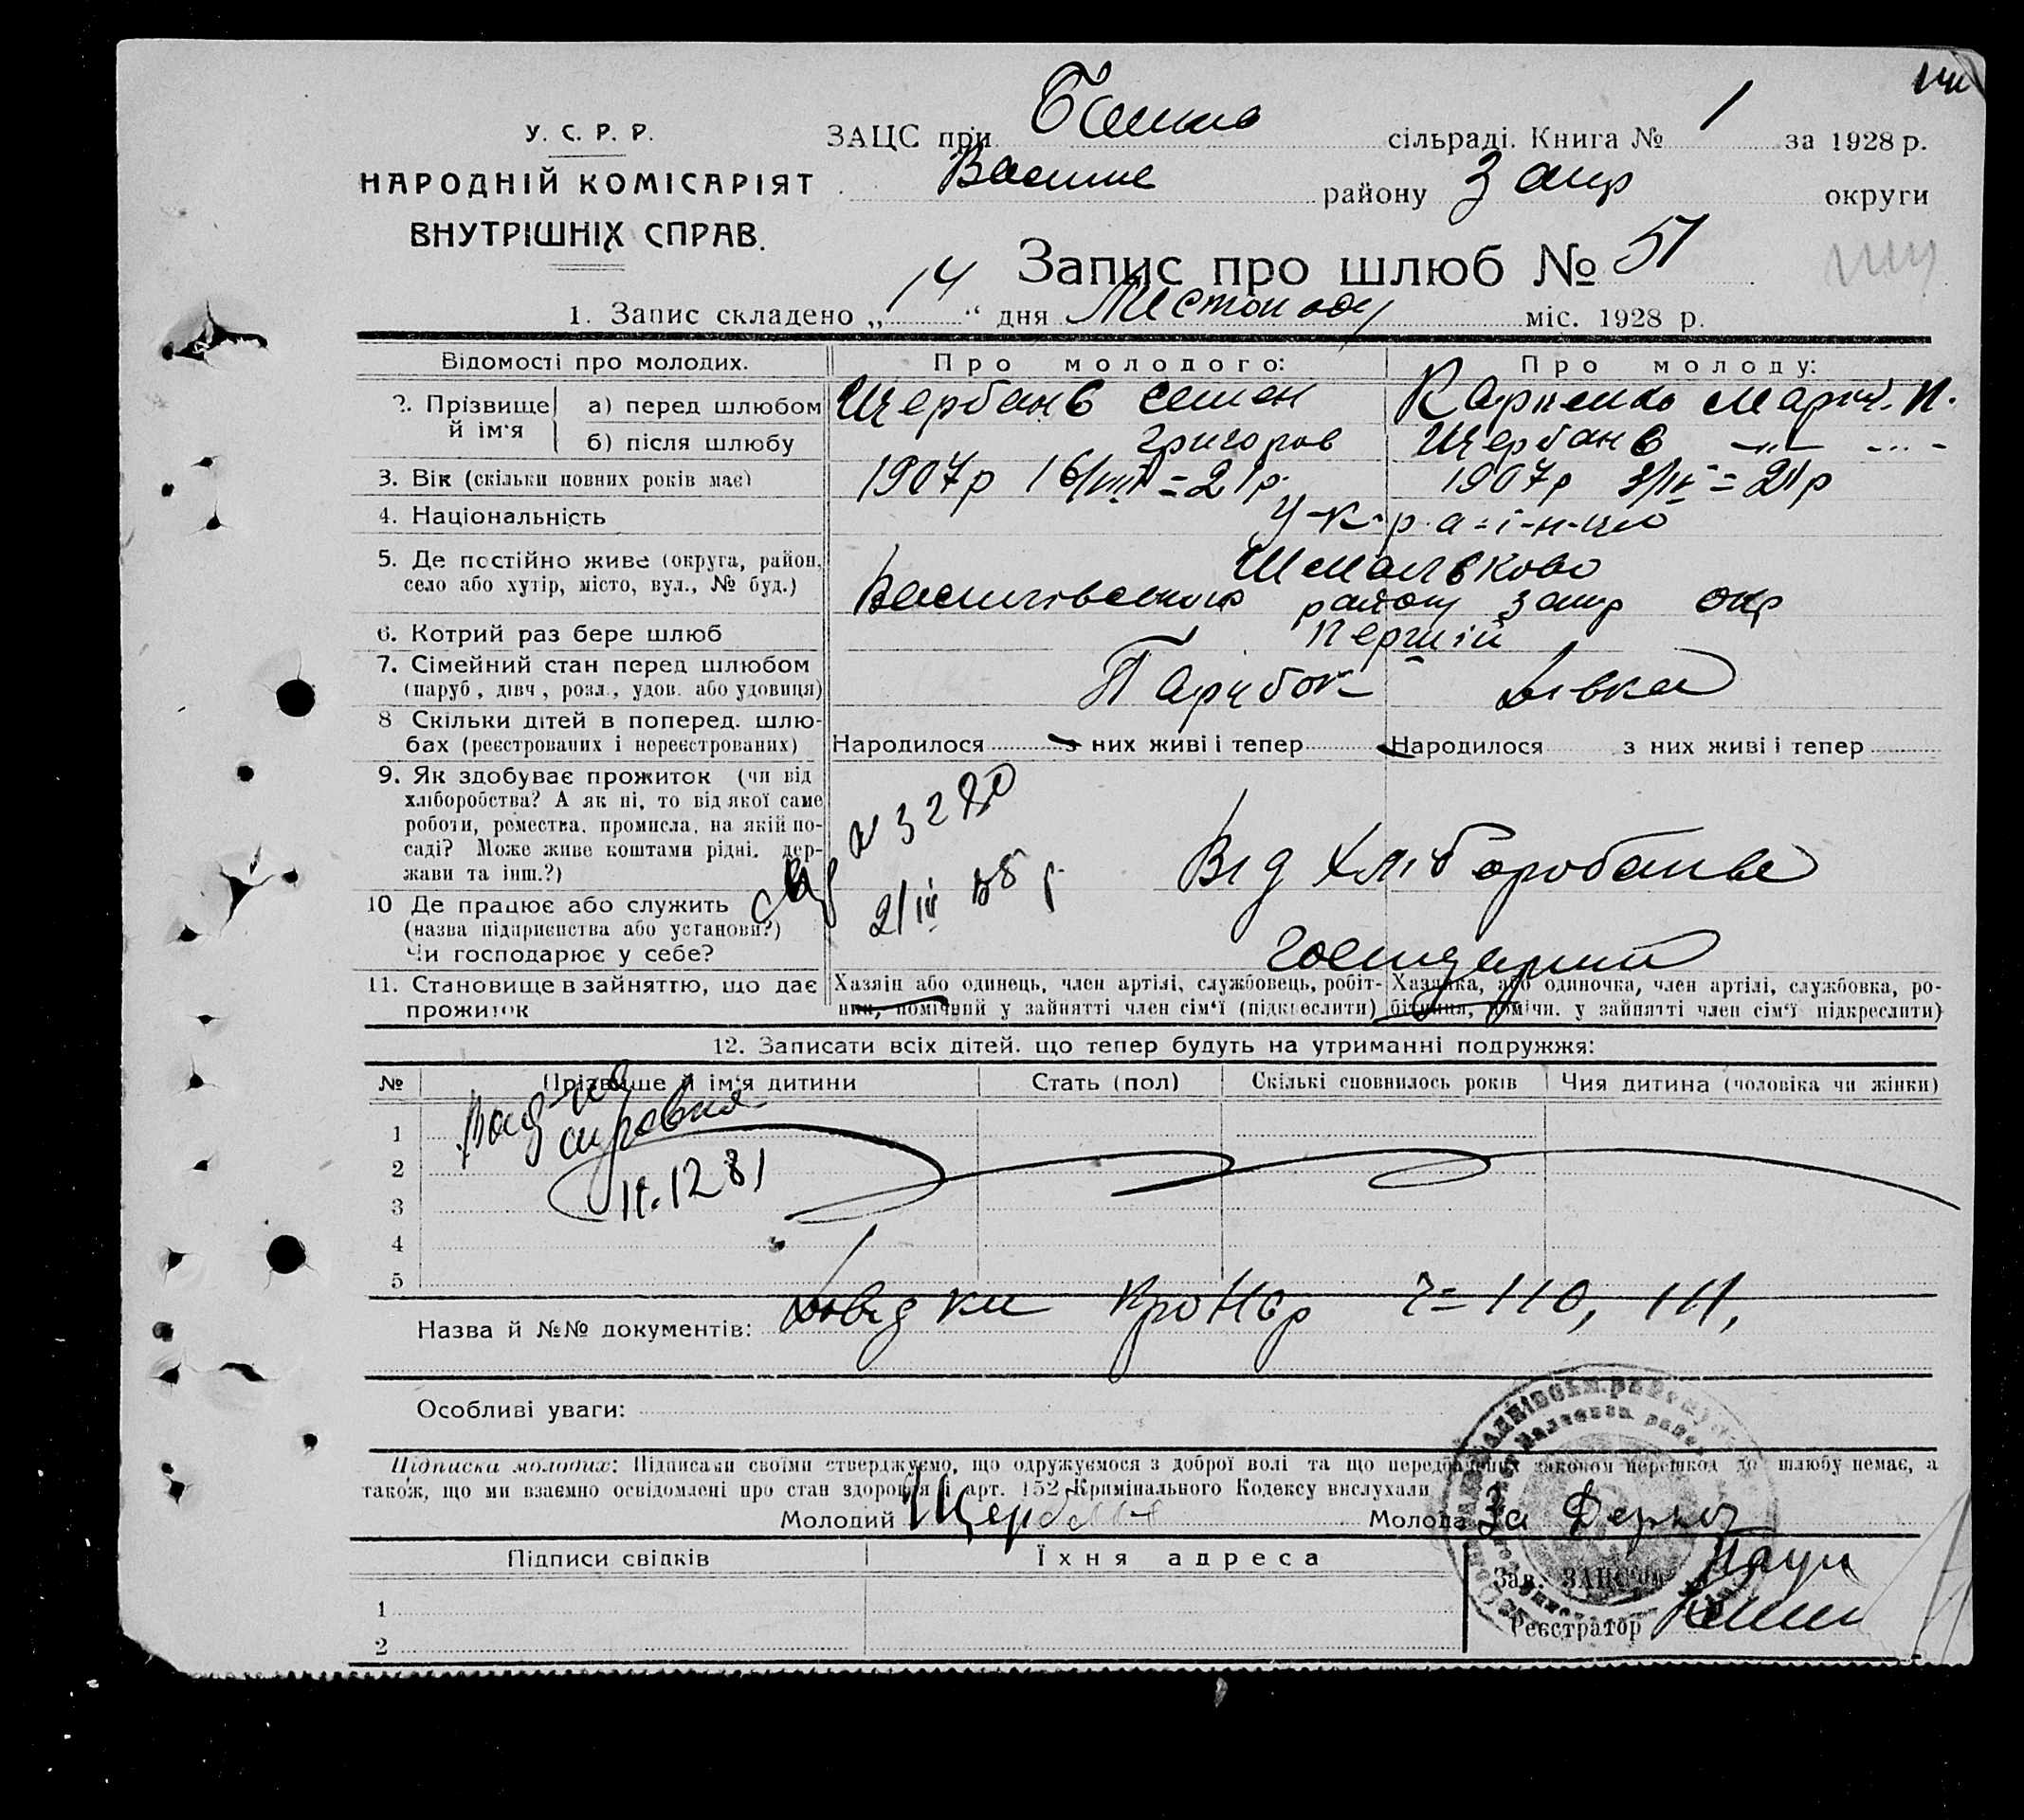 У. С. Р. Р.
НАРОДНІЙ КОМІСАРІЯТ
ВНУТРІШНІХ СПРАВ.
ЗАЦС при сільраді. Книга № 1 за 1928 р.
району Запр округи
Запис про шлюб № 51
1. Запис складено „14“ дня Листопаду міс. 1928 р.
Відомості про молодих. Про молодого: Про молоду:
2. Прізвище й ім'я а) перед шлюбом Щербань Семен Карпенко
б) після шлюбу Григоров Щербань —„—
3. Вік (скільки повних років має) 1907р 16/VIII = 21р. 1907р = 21р
4. Національність У-к-р-а-ї-н-ці
5. Де постійно живе (округа, район, село або хутір, місто, вул., № буд.) Шмальково
Василівського району Запр окр
6. Котрий раз бере шлюб Перший
7. Сімейний стан перед шлюбом Парубок Дівка
(паруб., дівч., розл., удов. або удовиця)
8 Скільки дітей в поперед. шлю-
бах (реєстрованих і нереєстрованих) Народилося з них живі і тепер Народилося з них живі і тепер
9. Як здобуває прожиток (чи від
хліборобства? А як ні, то від якої саме
роботи, ремества, промисла, на якій по-
саді? Може живе коштами рідні, дер- Від хліборобства
жави та інш.?)
№ 3280
10 Де працює або служить
(назва підприєпства або установи?)
Чи господарює у себе?
11. Становище в зайняттю, що дає Хазяїн або одинець, член артілі, службовець, робіт- Хазяйка, або одиночка, член артілі, службовка, ро-
прожиток ник, помічний у зайнятті член сім'ї (підкреслити) бітниця, помічн. у зайнятті член сім'ї підкреслити)
12. Записати всіх дітей. що тепер будуть на утриманні подружжя:
№ Прізвище й ім'я дитини Стать (пол) Скількі сповнилось років Чия дитина (чоловіка чи жінки)
1
2
3
4
5
Назва й №№ документів: Довідки про Нар ч= 110, 111,
Особливі уваги:
Підписка молодих: Підписами своїми стверджуємо, що одружуємося з доброї волі та що передбачених законом перешкод до шлюбу немає, а
також, що ми взаємно освідомлені про стан здоров'я й арт. 152 Кримінального Кодексу вислухали
Молодий Щербань Молода За
Підписи свідків Їхня адреса
Зав. ЗАЦС'ом
1
Реєстратор
2